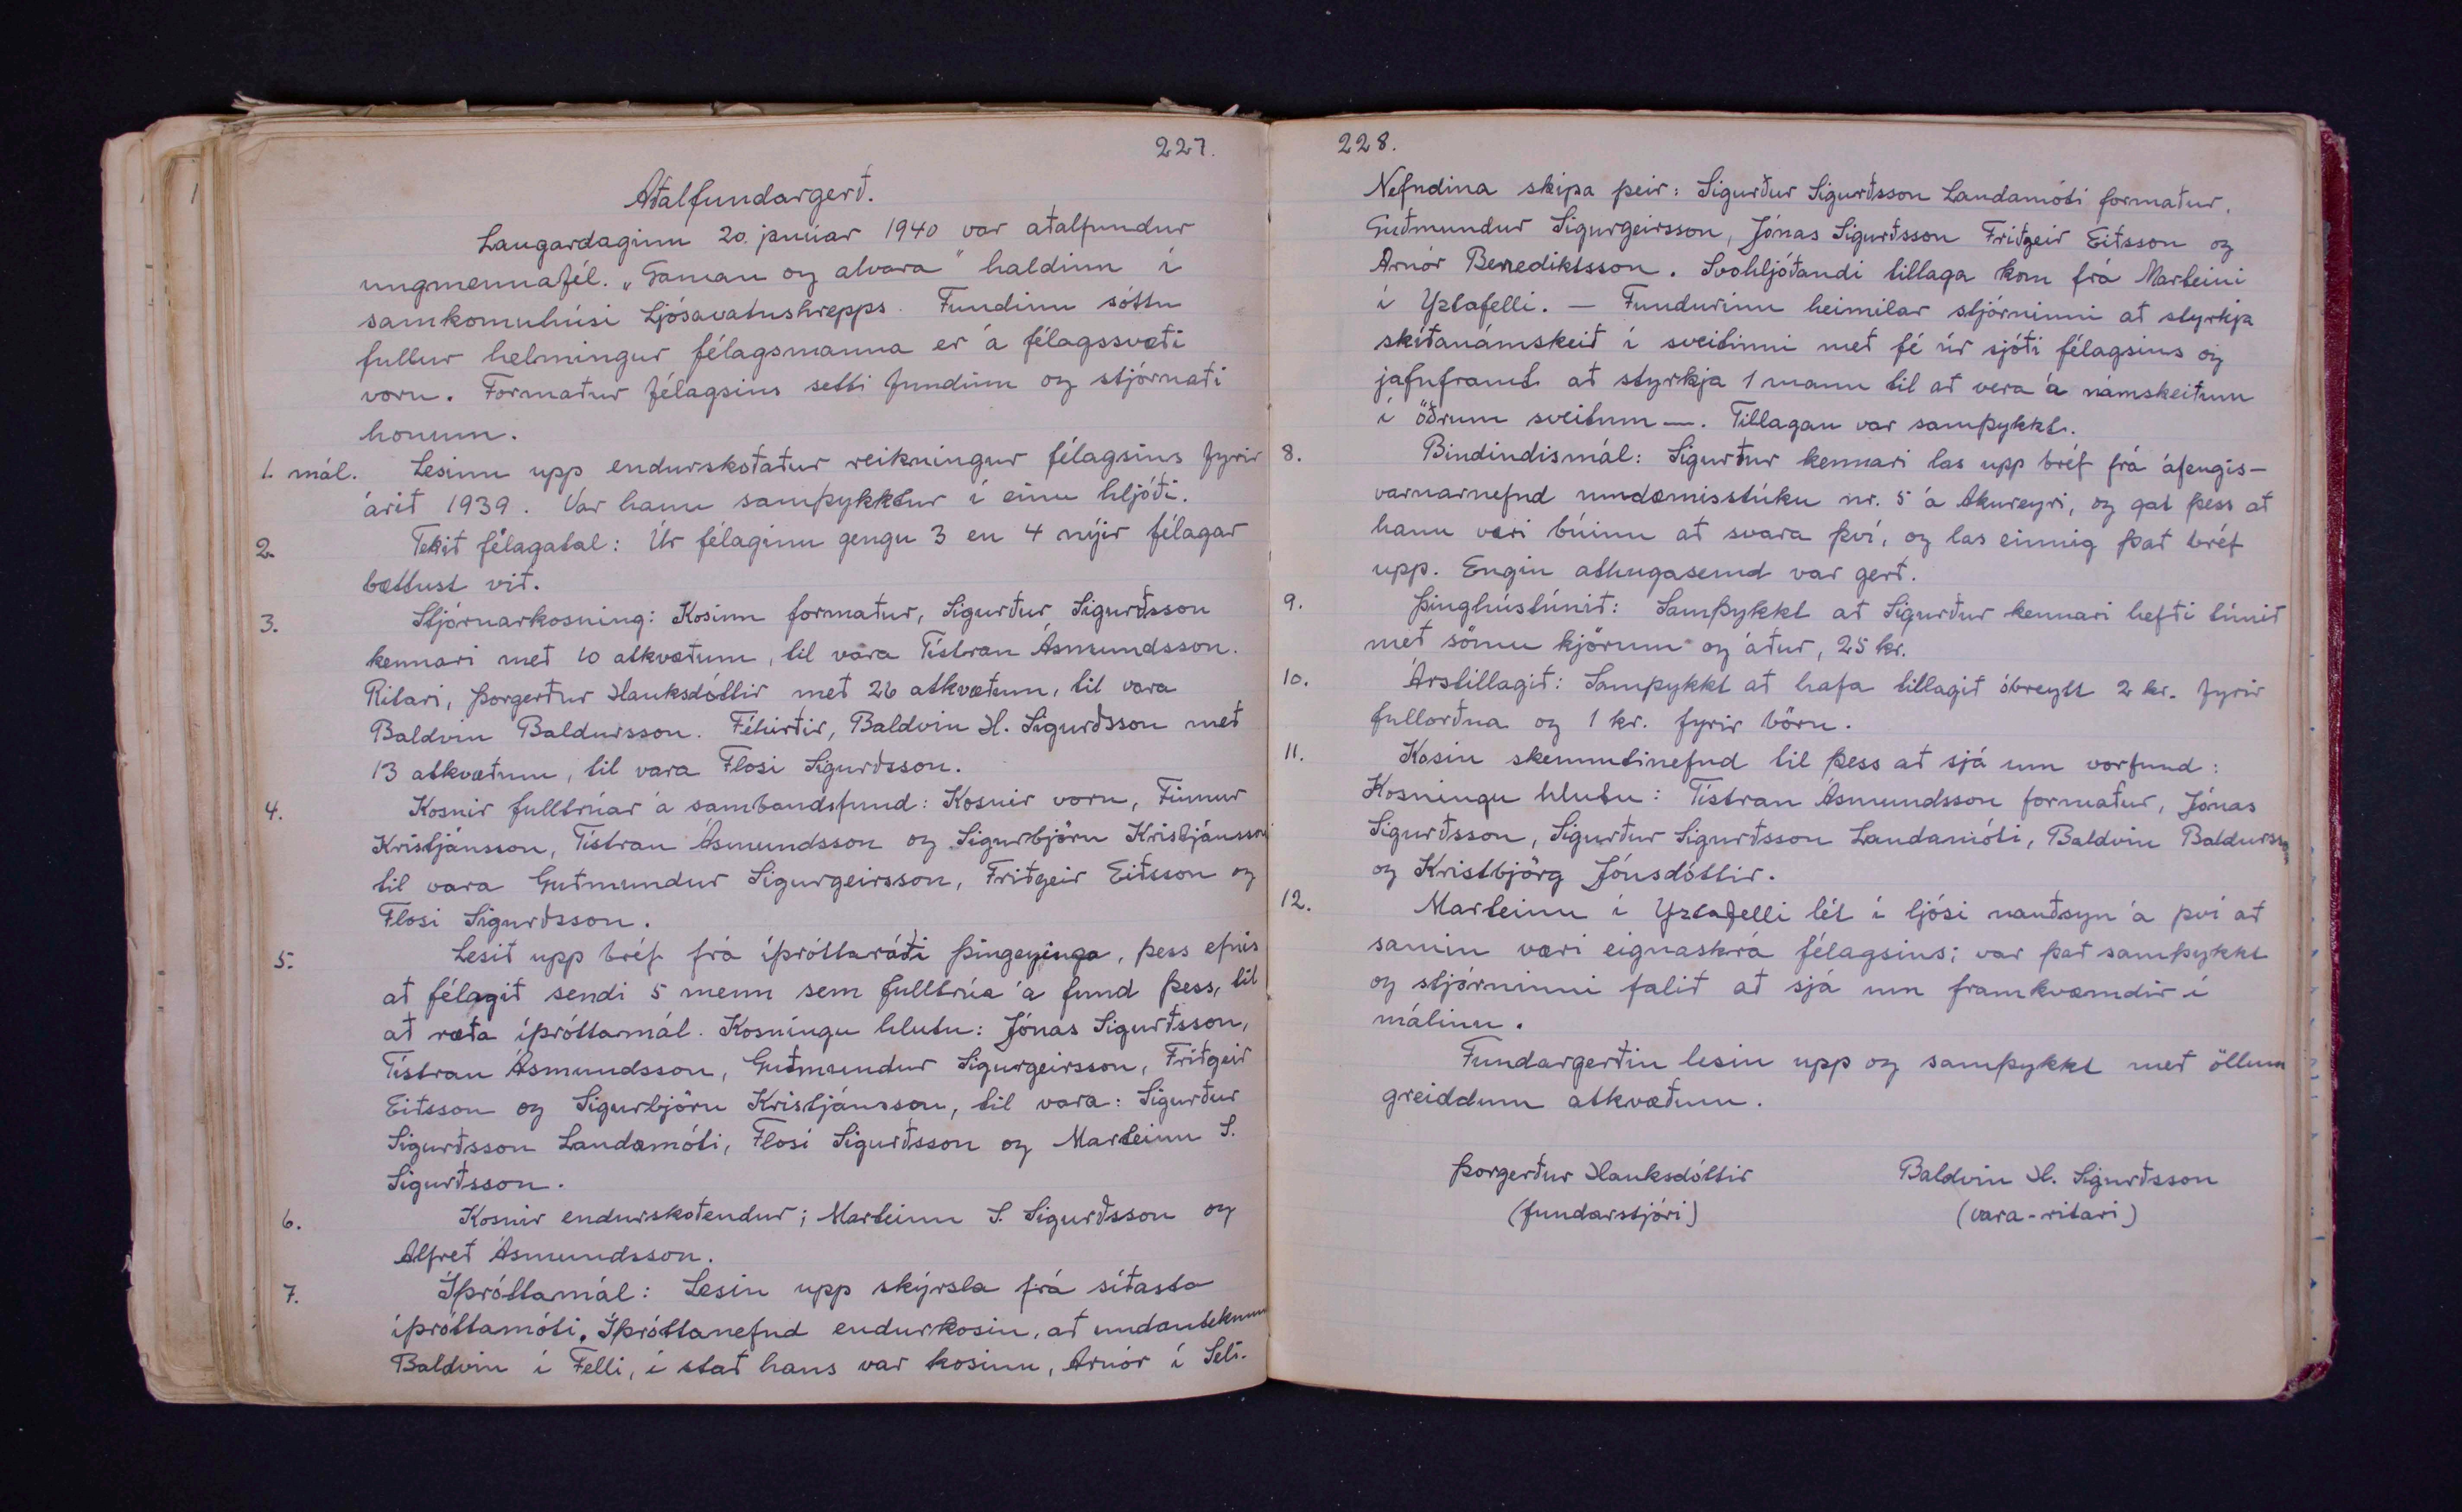 227.
Aðalfundargerð.
Laugardaginn 20. janúar 1940 var aðalfundur
ungmennafél. „Gaman og alvara" haldinn í
samkomuhúsi Ljósavatnshrepps. Fundinn sóttu
fullur helmingur félagsmanna er á félagssvæði
voru. Formaður félagsins setti fundinn og stjórnaði
honum.
1. mál. Lesinn upp endurskoðaður reikningur félagsins fyrir
árið 1939. Var hann samþykktur í einu hljóði.
2. Tekið félagatal: Úr félaginu gengu 3 en 4 nýir félagar
bættust við.
3. Stjórnarkosning: Kosinn formaður, Sigurður Sigurðsson
kennari með 10 atkvæðum, til vara Tístran Ásmundsson.
Ritari, Þorgerður Hauksdóttir með 26 atkvæðum, til vara
Baldvin Baldursson. Féhirðir, Baldvin H. Sigurðsson með
13 atkvæðum, til vara Flosi Sigurðsson.
4. Kosnir fulltrúar á sambandsfund: Kosnir voru, Finnur
Kristjánsson, Tístran Ásmundsson og Sigurbjörn Kristjánsson
til vara Guðmundur Sigurgeirsson, Friðgeir Eiðsson og
Flosi Sigurðsson.
5. Lesið upp bréf frá íþróttaráði Þingeyinga, þess efnis
að félagið sendi 5 menn sem fulltrúa á fund þess, til
að ræða íþróttamál. Kosningu hlutu: Jónas Sigurðsson,
Tístran Ásmundsson, Guðmundur Sigurgeirsson, Friðgeir
Eiðsson og Sigurbjörn Kristjánsson, til vara: Sigurður
Sigurðsson Landamóti, Flosi Sigurðsson og Marteinn S.
Sigurðsson.
6. Kosnir endurskoðendur; Marteinn S. Sigurðsson og
Alfreð Ásmundsson.
7. Íþróttamál: Lesin upp skýrsla frá síðasta
íþróttamóti. Íþróttanefnd endurkosin, að undanteknum
Baldvin í Felli, í stað hans var kosinn, Arnór í Seli.
228.
Nefndina skipa þeir: Sigurður Sigurðsson Landamóti formaður,
Guðmundur Sigurgeirsson, Jónas Sigurðsson Friðgeir Eiðsson og
Arnór Benediktsson. Svohljóðandi tillaga kom frá Marteini
í Yztafelli. — Fundurinn heimilar stjórninni að styrkja
skíðanámskeið í sveitinni með fé úr sjóði félagsins og
jafnframt að styrkja 1 mann til að vera á námskeiðum
í öðrum sveitum —. Tillagan var samþykkt.
8. Bindindismál: Sigurður kennari las upp bréf frá áfengis-
varnarnefnd umdæmisstúku nr. 5 á Akureyri, og gat þess að
hann væri búinn að svara því, og las einnig það bréf
upp. Engin athugasemd var gerð.
9. Þinghústúnið: Samþykkt að Sigurður kennari hefði túnið
með sömu kjörum og áður, 25 kr.
10. Árstillagið: Samþykkt að hafa tillagið óbreytt 2 kr. fyrir
fullorðna og 1 kr. fyrir börn.
11. Kosin skemmtinefnd til þess að sjá um vorfund:
Kosningu hlutu: Tístran Ásmundsson formaður, Jónas
Sigurðsson, Sigurður Sigurðsson Landamóti, Baldvin Baldursson
og Kristbjörg Jónsdóttir.
12. Marteinn í Yztafelli lét í ljósi nauðsyn á því að
samin væri eignaskrá félagsins; var það samþykkt
og stjórninni falið að sjá um framkvæmdir í
málinu.
Fundargerðin lesin upp og samþykkt með öllum
greiddum atkvæðum.
Þorgerður Hauksdóttir Baldvin H. Sigurðsson
(fundarstjóri) (vara-ritari)